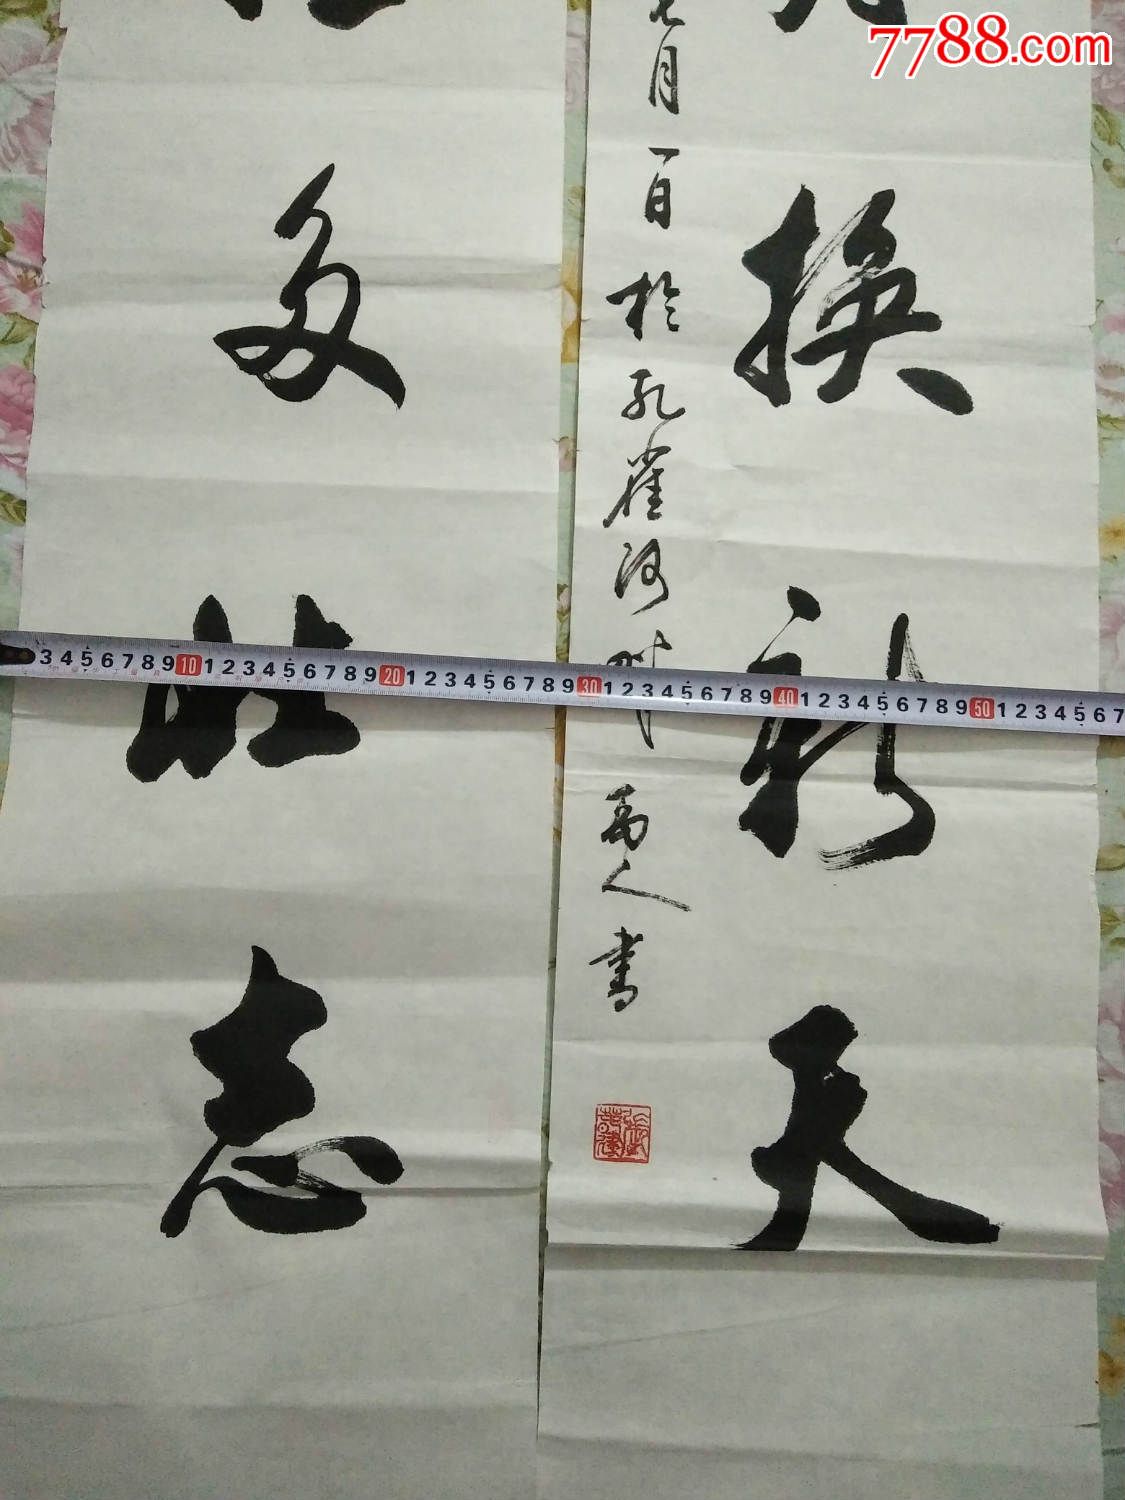 多壮志
换新天
七月一日於孔雀河畔 人書
3 4 5 6 7 8 9 10 1 2 3 4 5 6 7 8 9 20 1 2 3 4 5 6 7 8 9 30 1 2 3 4 5 6 7 8 9 40 1 2 3 4 5 6 7 8 9 50 1 2 3 4 5 6 7
7788.com